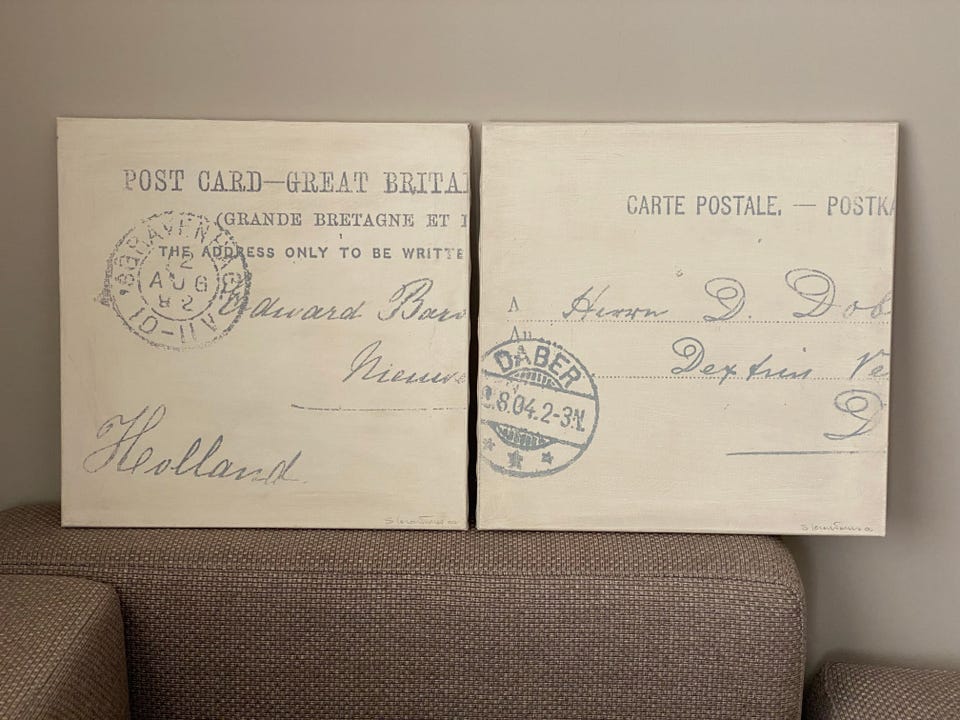 POST CARD—GREAT BRITA
(GRANDE BRETAGNE ET
THE ADDRESS ONLY TO BE WRITTE
AUG
82
Edward Baro
Nieuwe
Holland
CARTE POSTALE. — POSTKA
A Herrn D. Dob
An
Dextrin Ve
D
DABER
8.04.2-3N.